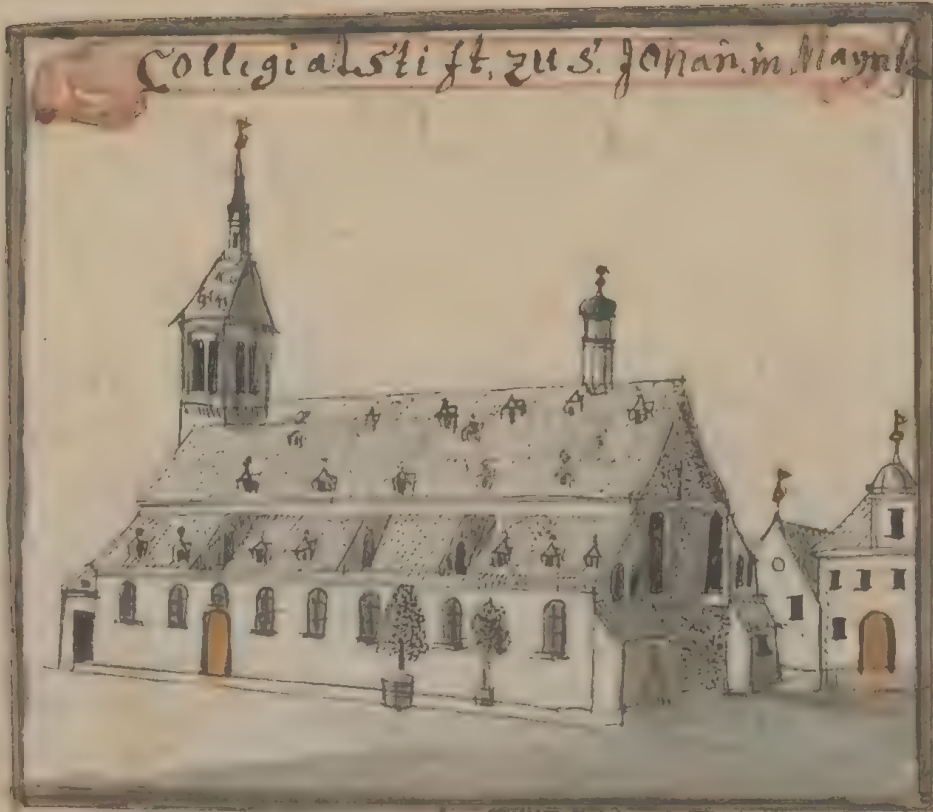 Collegialstift. zu S. Johan̄. in Mayntz